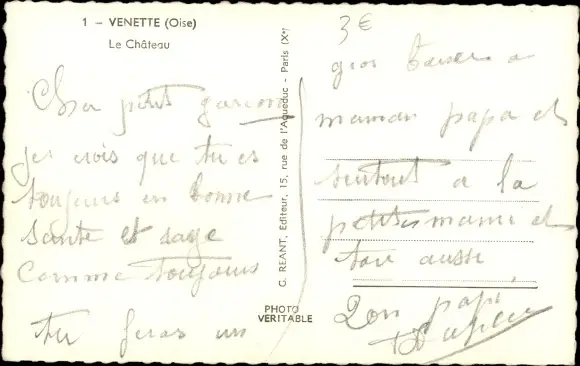 1 - VENETTE (Oise)
Le Château
3€
Cher petit garcon
je crois que tu es
toujours en bonne
sante et sage
comme toujours
tu feras un
gros baiser a
maman papa et
surtout a la
petite mami et
toi aussi
Ton papi
G. REANT, Editeur, 15, rue de l'Aqueduc - Paris (Xe)
PHOTO
VERITABLE